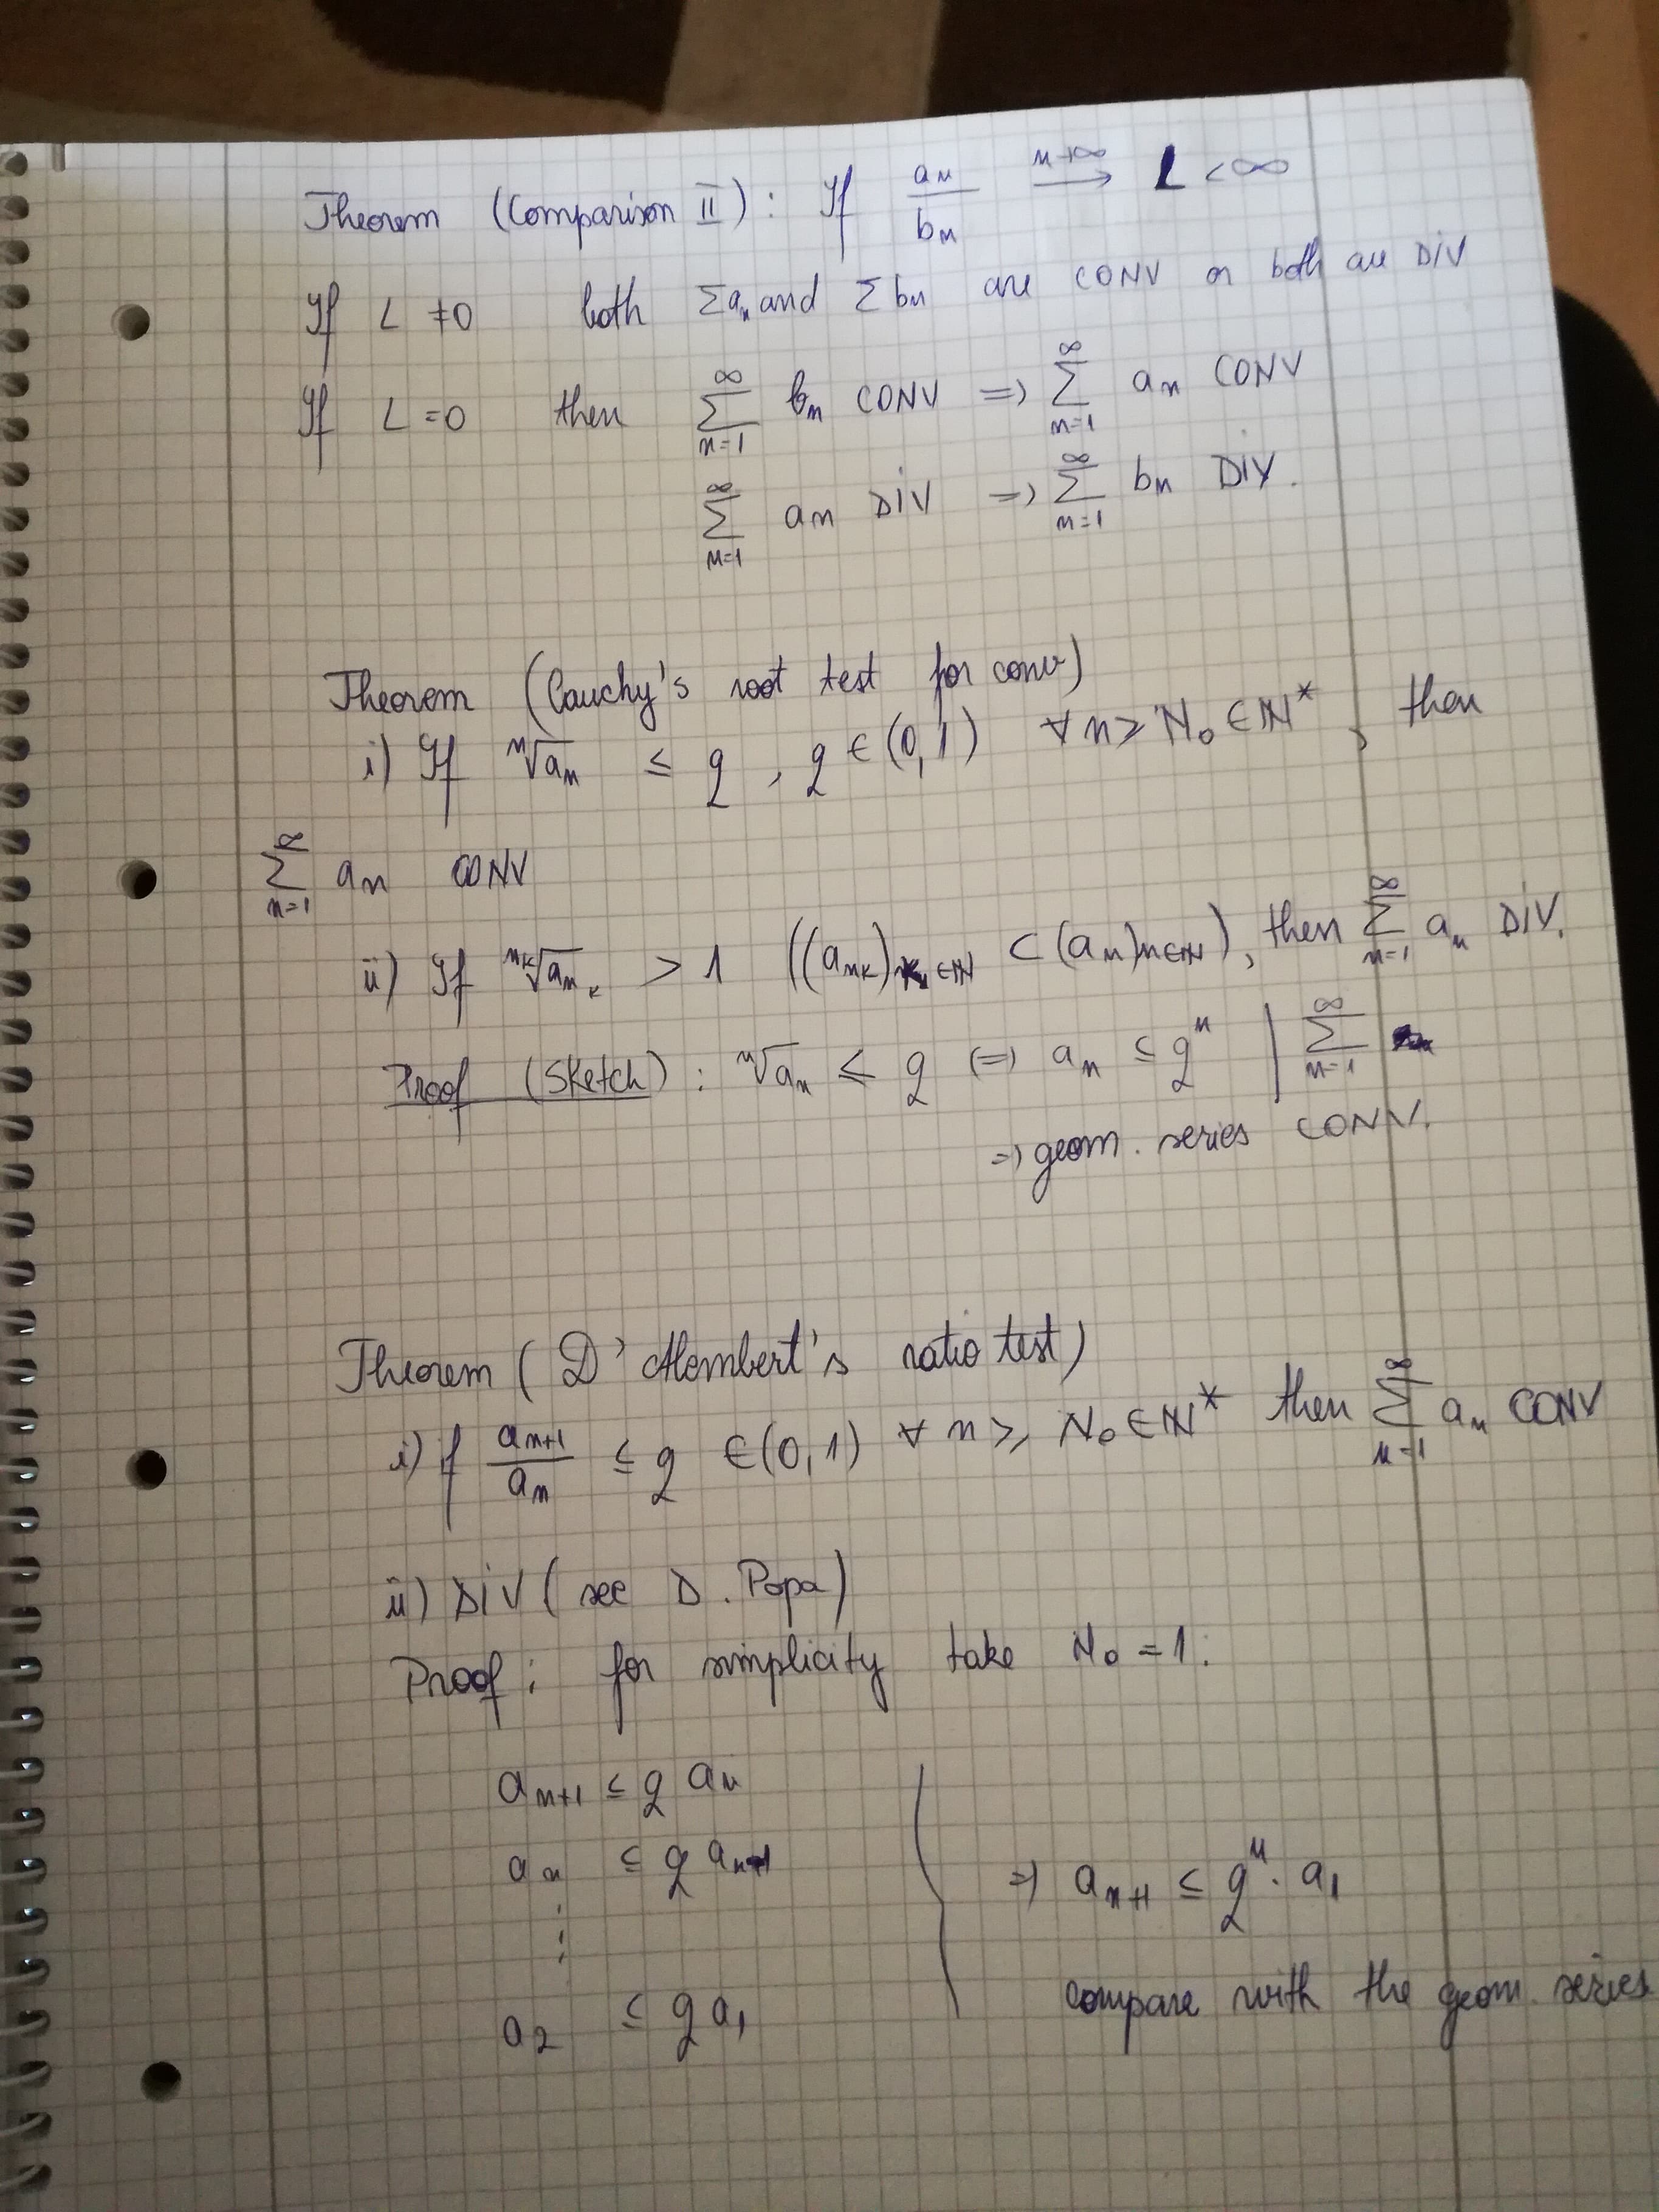 Theorem (Comparison II): If a_n/b_n \xrightarrow{n→∞} L < ∞
If L ≠ 0 both Σa_n and Σb_n are CONV or both are DIV
If L = 0 then \sum_{n=1}^{∞} b_n CONV => \sum_{n=1}^{∞} a_n CONV
\sum_{n=1}^{∞} a_n DIV => \sum_{n=1}^{∞} b_n DIV.
Theorem (Cauchy's root test for conv)
i) If \sqrt[n]{a_n} ≤ q, q ∈ (0,1) ∀ n ≥ N_0 ∈ ℕ*, then
\sum_{n=1}^{∞} a_n CONV
ii) If \sqrt[n_k]{a_{n_k}} > 1 ((a_{n_k})_{k∈ℕ} ⊂ (a_n)_{n∈ℕ}), then \sum_{n=1}^{∞} a_n DIV.
Proof (Sketch): \sqrt[n]{a_n} ≤ q (=) a_n ≤ q^n | \sum_{n=1}^{∞}
=> geom. series CONV.
Theorem (D'Alembert's ratio test)
i) if a_{n+1}/a_n ≤ q ∈ (0,1) ∀ n ≥ N_0 ∈ ℕ* then \sum_{n=1}^{∞} a_n CONV
ii) DIV (see D. Popa)
Proof: for simplicity take N_0 = 1:
a_{n+1} ≤ q a_n
a_n ≤ q a_{n-1}
⋮
a_2 ≤ q a_1
=> a_{n+1} ≤ q^n · a_1
compare with the geom. series